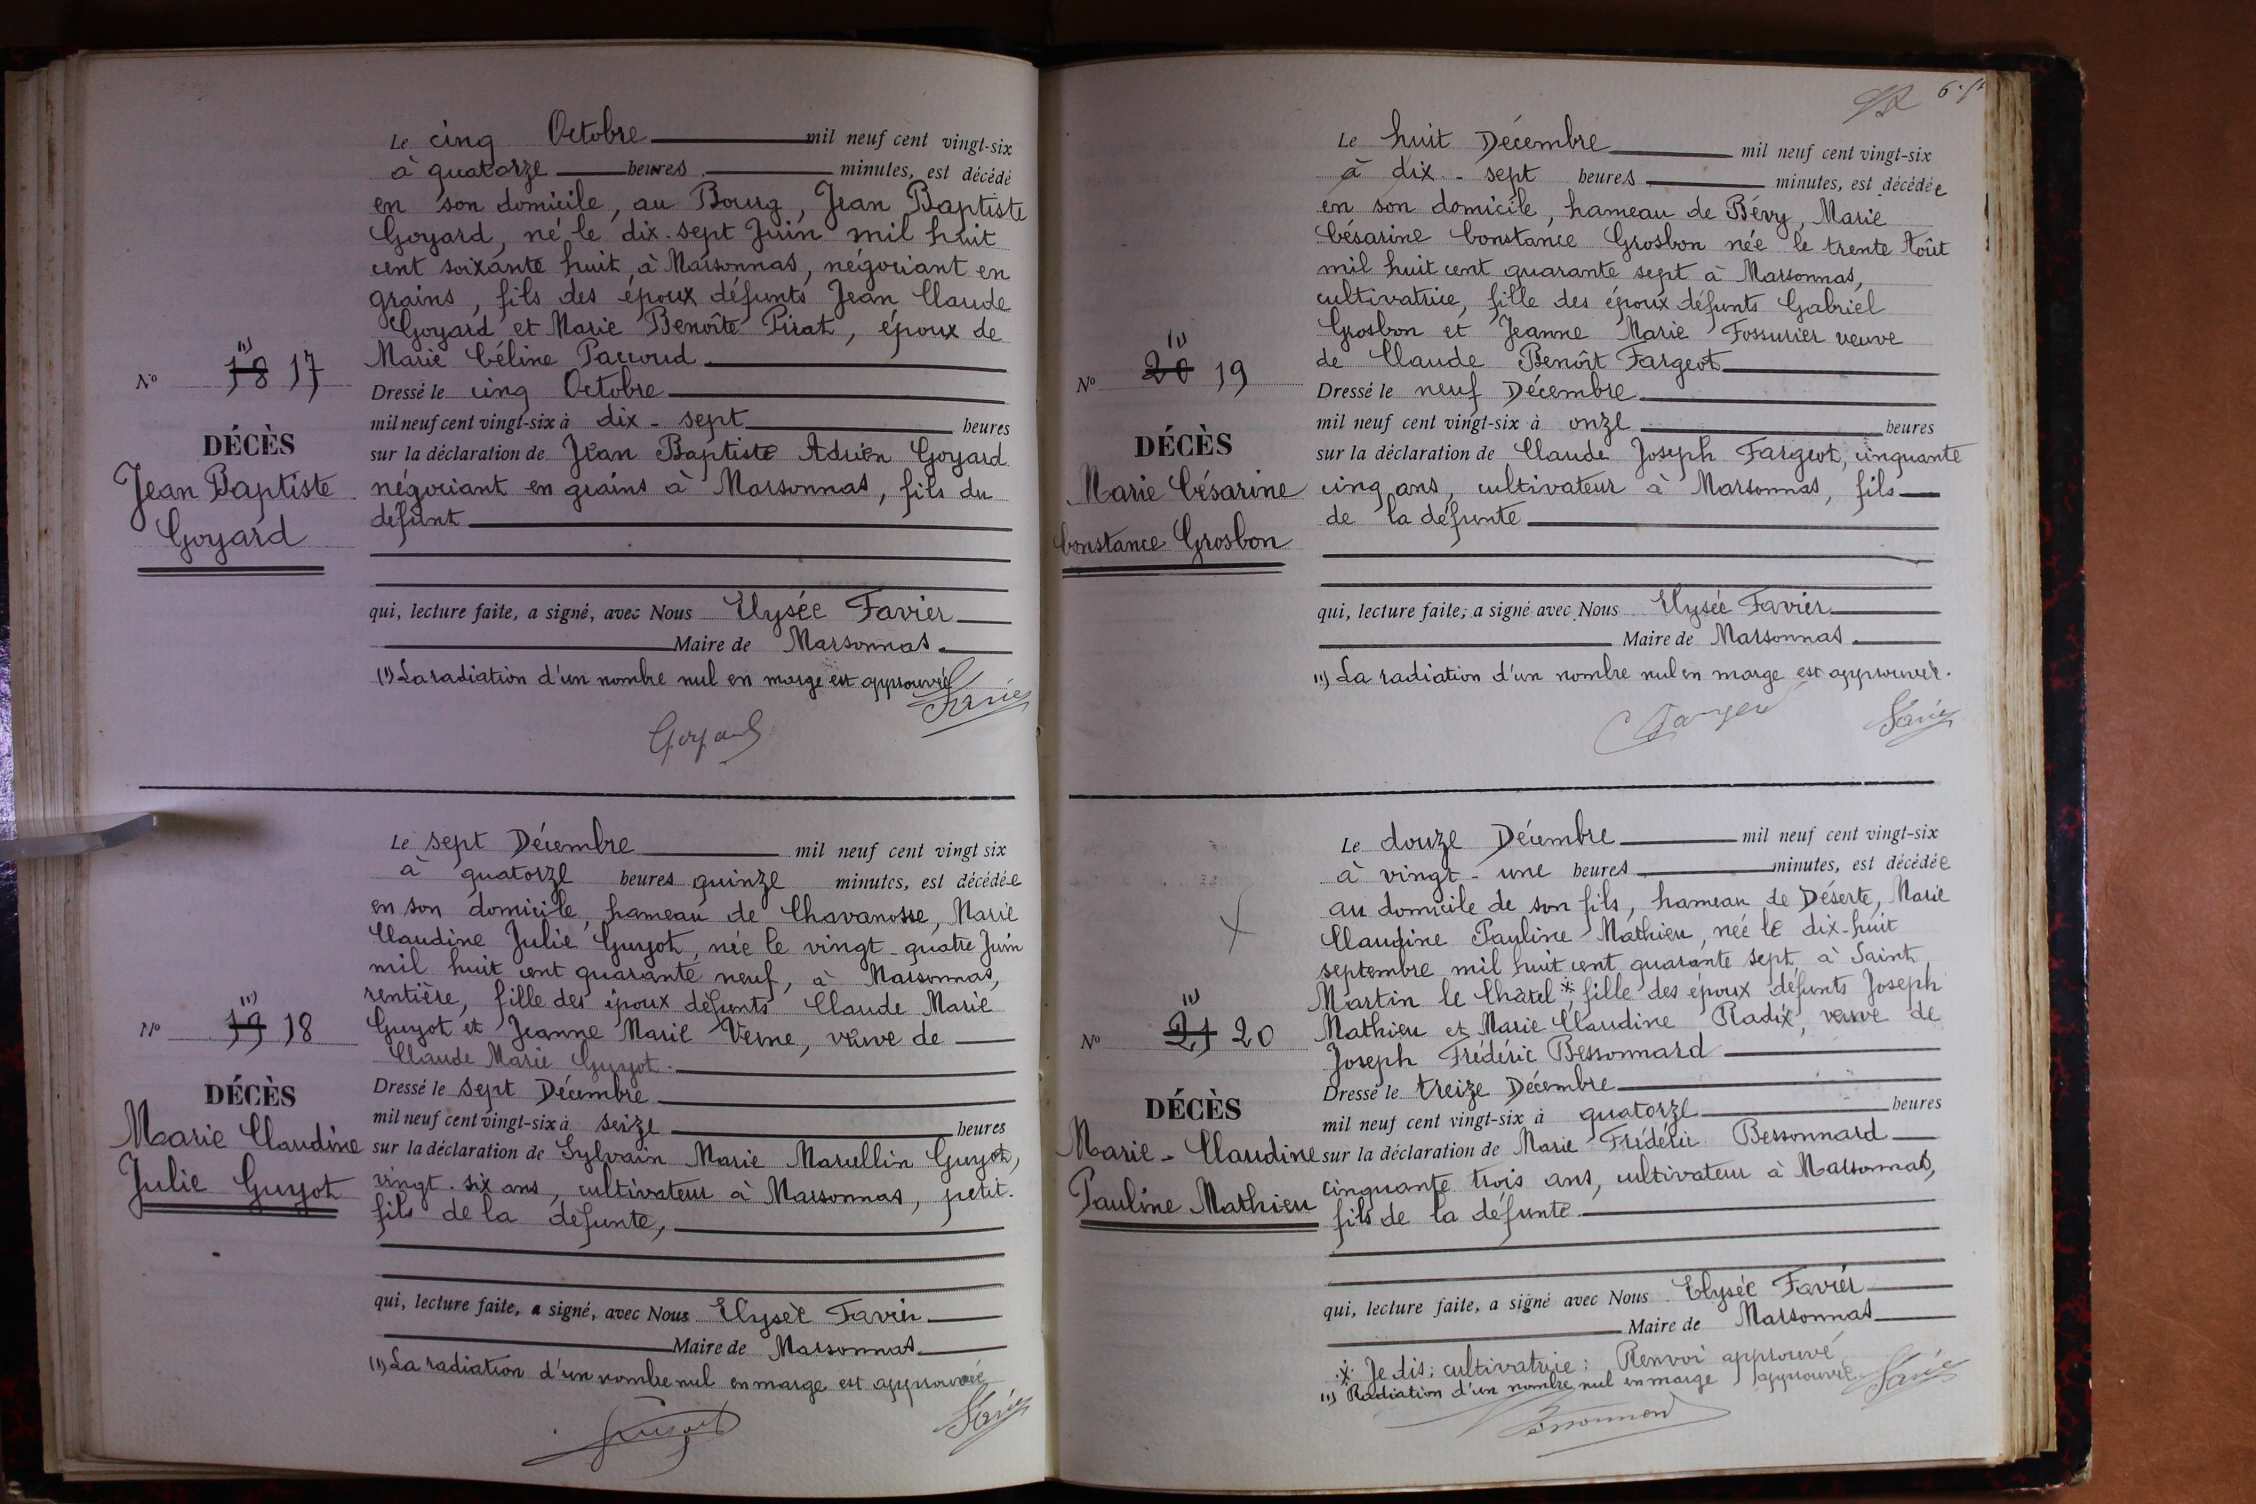 Le cinq Octobre mil neuf cent vingt-six
à quatorze heures minutes, est décédé
en son domicile, au Bourg, Jean Baptiste
Goyard, né le dix-sept Juin mil huit
cent soixante huit, à Marsonnas, négociant en
grains, fils des époux défunts Jean Claude
Goyard et Marie Benoîte Pirat, époux de
Marie Céline Paccoud
Dressé le cinq Octobre
mil neuf cent vingt-six à dix-sept heures
sur la déclaration de Jean Baptiste Adrien Goyard
négociant en grains à Marsonnas, fils du
défunt
qui, lecture faite, a signé, avec Nous Elysée Favier
Maire de Marsonnas
(1) La radiation d'un nombre nul en marge est approuvée
Goyard Favier
(1)
No 18 17
DÉCÈS
Jean Baptiste
Goyard
Le sept Décembre mil neuf cent vingt six
à quatorze heures quinze minutes, est décédée
en son domicile, hameau de Chavanosse, Marie
Claudine Julie Guyot, née le vingt-quatre Juin
mil huit cent quarante neuf, à Marsonnas,
rentière, fille des époux défunts Claude Marie
Guyot et Jeanne Marie Verne, veuve de
Claude Marie Guyot.
Dressé le sept Décembre
mil neuf cent vingt-six à seize heures
sur la déclaration de Sylvain Marie Marcellin Guyot,
vingt-six ans, cultivateur à Marsonnas, petit-
fils de la défunte,
qui, lecture faite, a signé, avec Nous Elysée Favier
Maire de Marsonnas
(1) La radiation d'un nombre nul en marge est approuvée
Guyot Favier
(1)
No 19 18
DÉCÈS
Marie Claudine
Julie Guyot
Le huit Décembre mil neuf cent vingt-six
à dix-sept heures minutes, est décédée
en son domicile, hameau de Bévy, Marie
Césarine Constance Grosbon née le trente Août
mil huit cent quarante sept à Marsonnas,
cultivatrice, fille des époux défunts Gabriel
Grosbon et Jeanne Marie Fossurier veuve
de Claude Benoît Fargeot
Dressé le neuf Décembre
mil neuf cent vingt-six à onze heures
sur la déclaration de Claude Joseph Fargeot, cinquante
cinq ans, cultivateur à Marsonnas, fils
de la défunte
qui, lecture faite, a signé avec Nous Elysée Favier
Maire de Marsonnas
(1) La radiation d'un nombre nul en marge est approuvée.
Fargeot Favier
(1)
No 20 19
DÉCÈS
Marie Césarine
Constance Grosbon
Le douze Décembre mil neuf cent vingt-six
à vingt-une heures minutes, est décédée
au domicile de son fils, hameau de Déserte, Marie
Claudine Pauline Mathieu, née le dix-huit
septembre mil huit cent quarante sept à Saint
Martin le Châtel *, fille des époux défunts Joseph
Mathieu et Marie Claudine Radix, veuve de
Joseph Frédéric Bessonnard
Dressé le treize Décembre
mil neuf cent vingt-six à quatorze heures
sur la déclaration de Marie Frédéric Bessonnard
cinquante trois ans, cultivateur à Marsonnas,
fils de la défunte
qui, lecture faite, a signé avec Nous Elysée Favier
Maire de Marsonnas
* Je dis: cultivatrice: Renvoi approuvé
(1) Radiation d'un nombre nul en marge approuvée.
Bessonnard Favier
(1)
No 21 20
DÉCÈS
Marie-Claudine
Pauline Mathieu